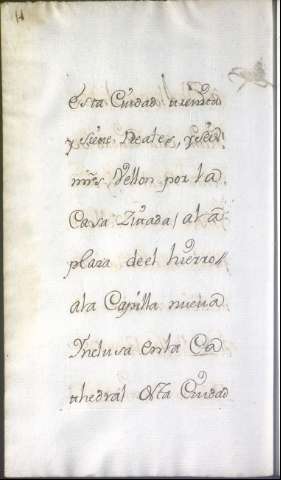 esta Ciudad treinta
y siete Reales, y seis
mrs. Vellon por la
Casa Zitada, ala
plaza deel hierro,
ala Capilla nueva
Inclusa en la Ca
thedral dsta Ciudad